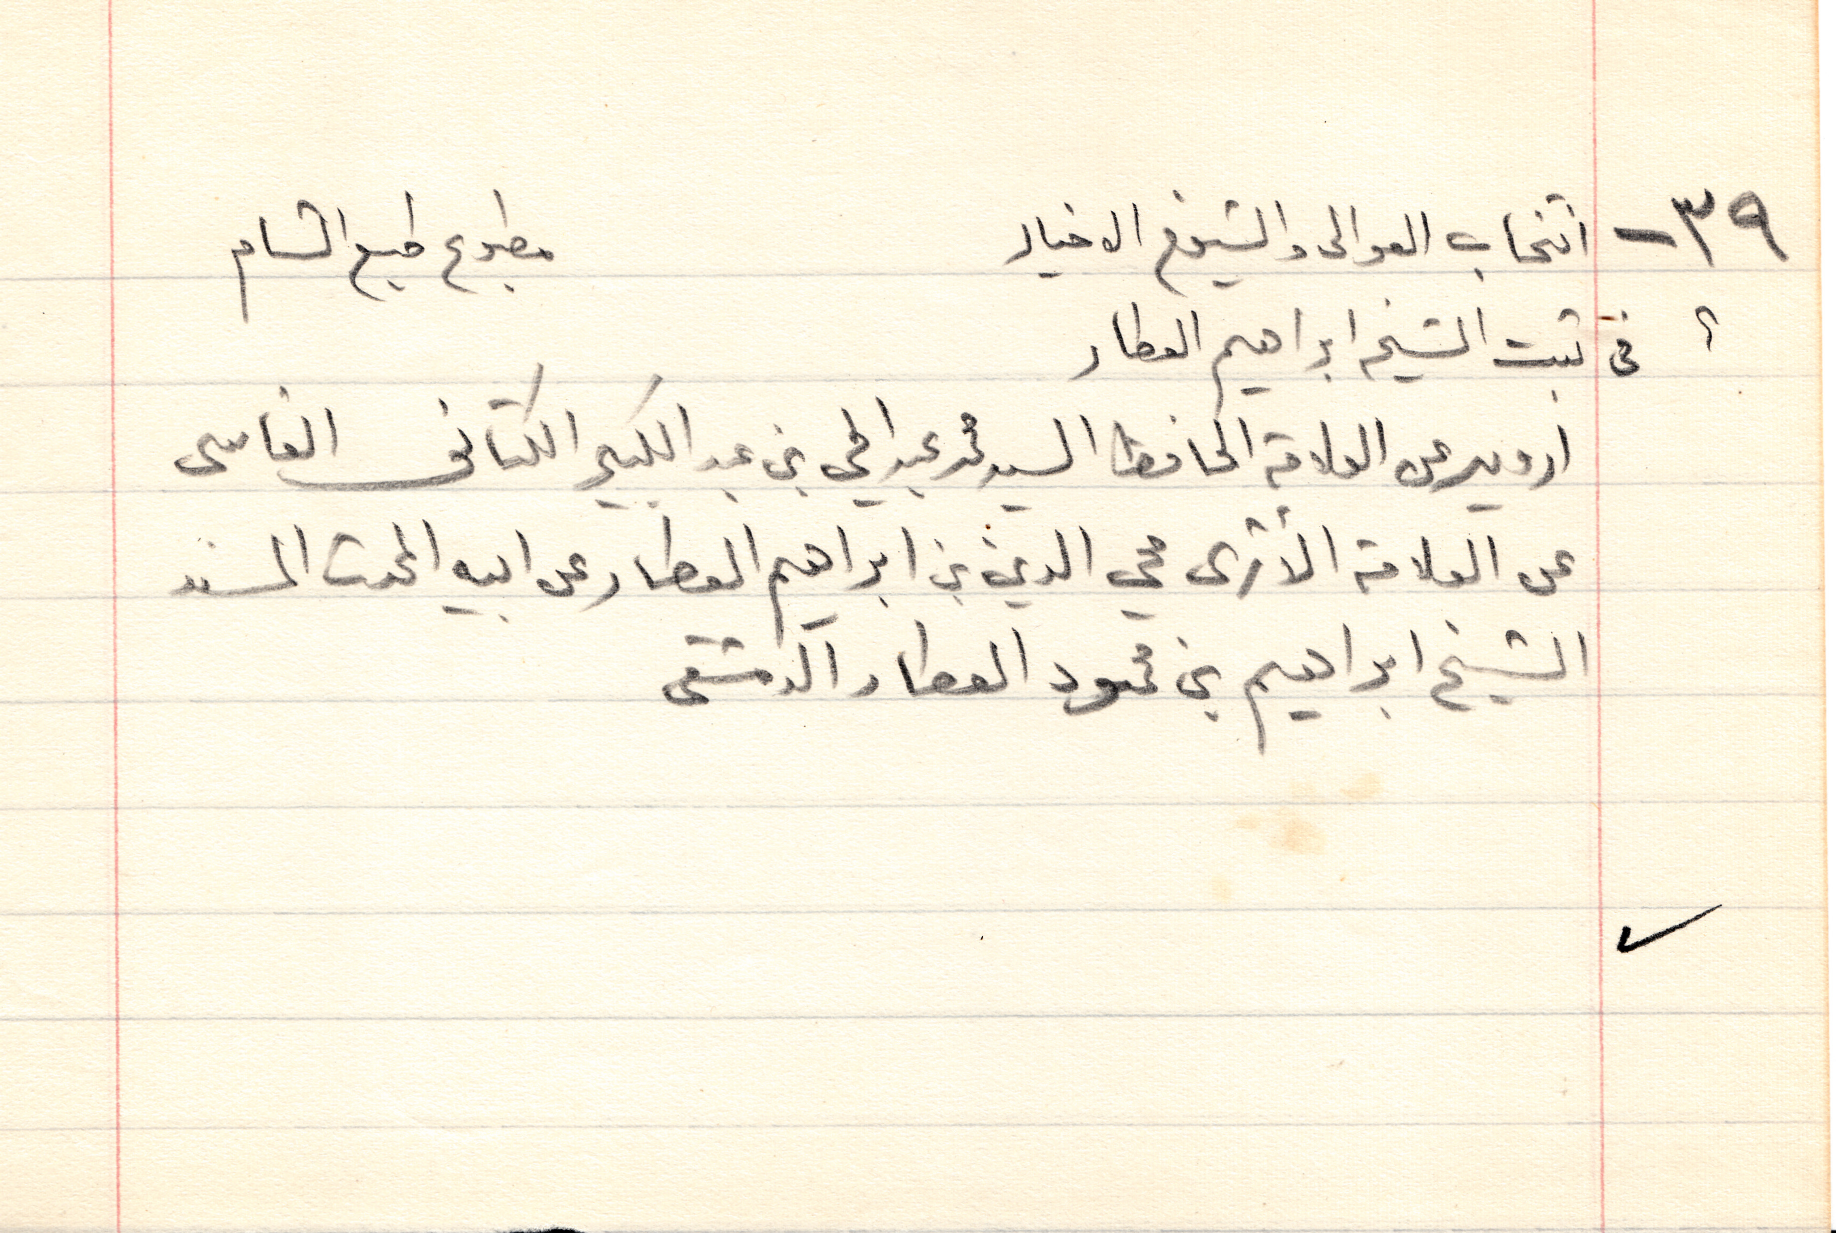 ٣٩- انتخاب العوالى والشيوخ الاخيار مطبوع طبع الشام
؟ فى ثبت الشيخ ابراهيم العطار
ارويه عن العلامة الحافظ السيد محمد عبد الحي بن عبد الكبير الكتانى الفاسى
عن العلامة الأثرى محي الدين بن ابراهيم العطار عن ابيه المحدث المسند
الشيخ ابراهيم بن محمود العطار الدمشقى